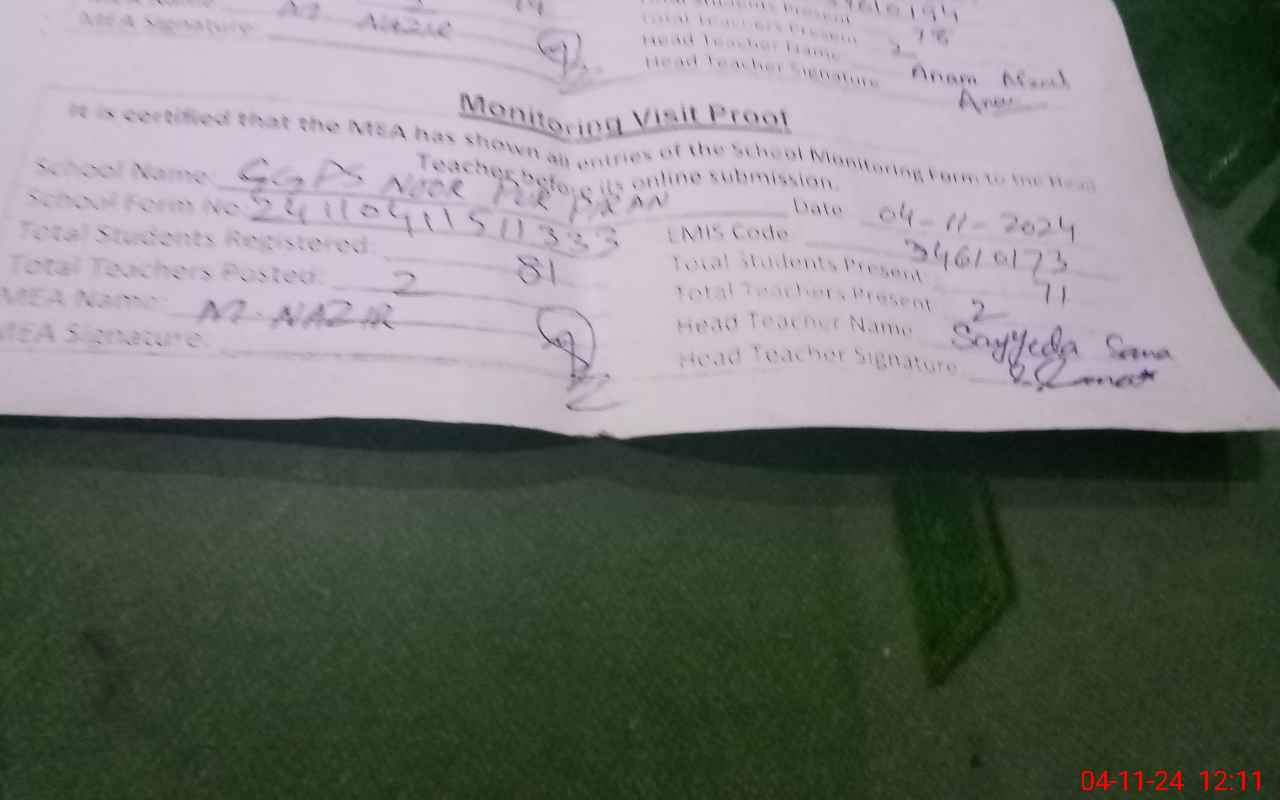 MEA Signature: M. NAZIR
Total Teachers Present
78
Head Teacher Name 2
Head Teacher Signature Anam
Monitoring Visit Proof
It is certified that the MEA has shown all entries of the School Monitoring Form to the Head
Teacher before its online submission.
School Name: GGPS NOOR PUR PIRAN Date 04-11-2024
School Form No 24110411511333 EMIS Code 34610173
Total Students Registered: 81 Total Students Present 71
Total Teachers Posted: 2 Total Teachers Present 2
MEA Name: M. NAZIR Head Teacher Name Sayyeda Sana
MEA Signature: Head Teacher Signature
04-11-24 12:11